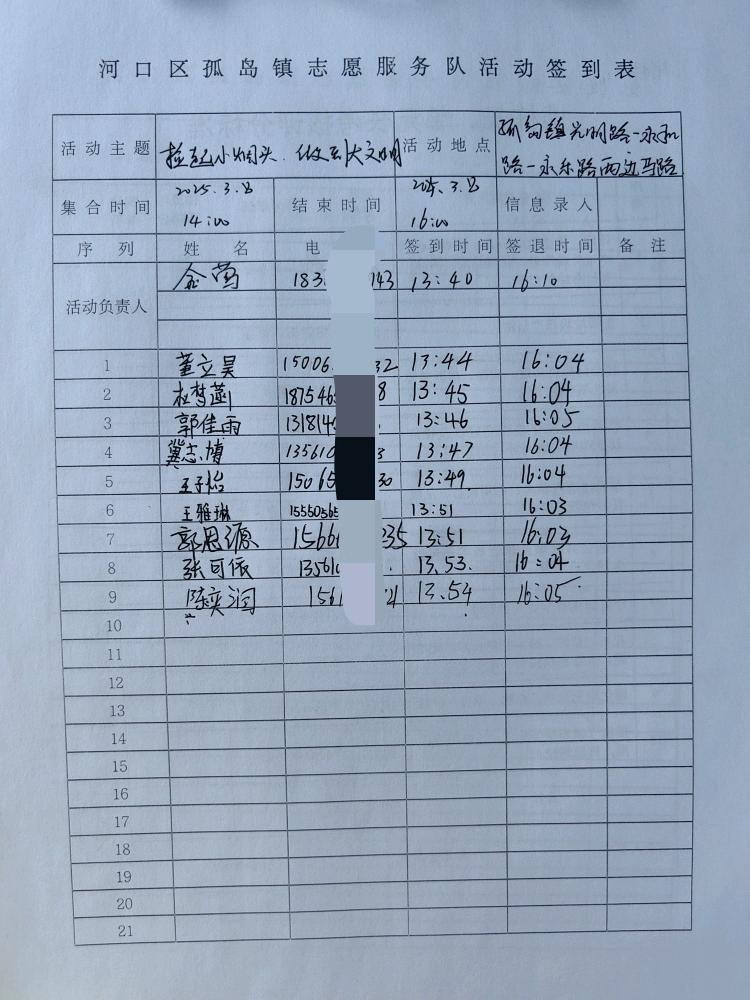 河口区孤岛镇志愿服务队活动签到表
活动主题 捡起小烟头.做到大文明 活动地点 孤岛镇光明路-永和
路-永乐路两边马路
集合时间 2025.3.8 14:00 结束时间 2025.3.8 16:00 信息录入
序列 姓名 电 签到时间 签退时间 备注
活动负责人 金莺 183 143 13:40 16:10
1 董立昊 15006 32 13:44 16:04
2 杜梦菡 187546 8 13:45 16:04
3 郭佳雨 131814 13:46 16:05
4 冀志博 135610 3 13:47 16:04
5 王子怡 15065 30 13:49 16:04
6 王雅琳 15550365 13:51 16:03
7 郭恩源 1566 235 13:51 16:03
8 张可依 13561 13.53. 16:04
9 陈奕润 1561 21 13.54 16:05
10
11
12
13
14
15
16
17
18
19
20
21